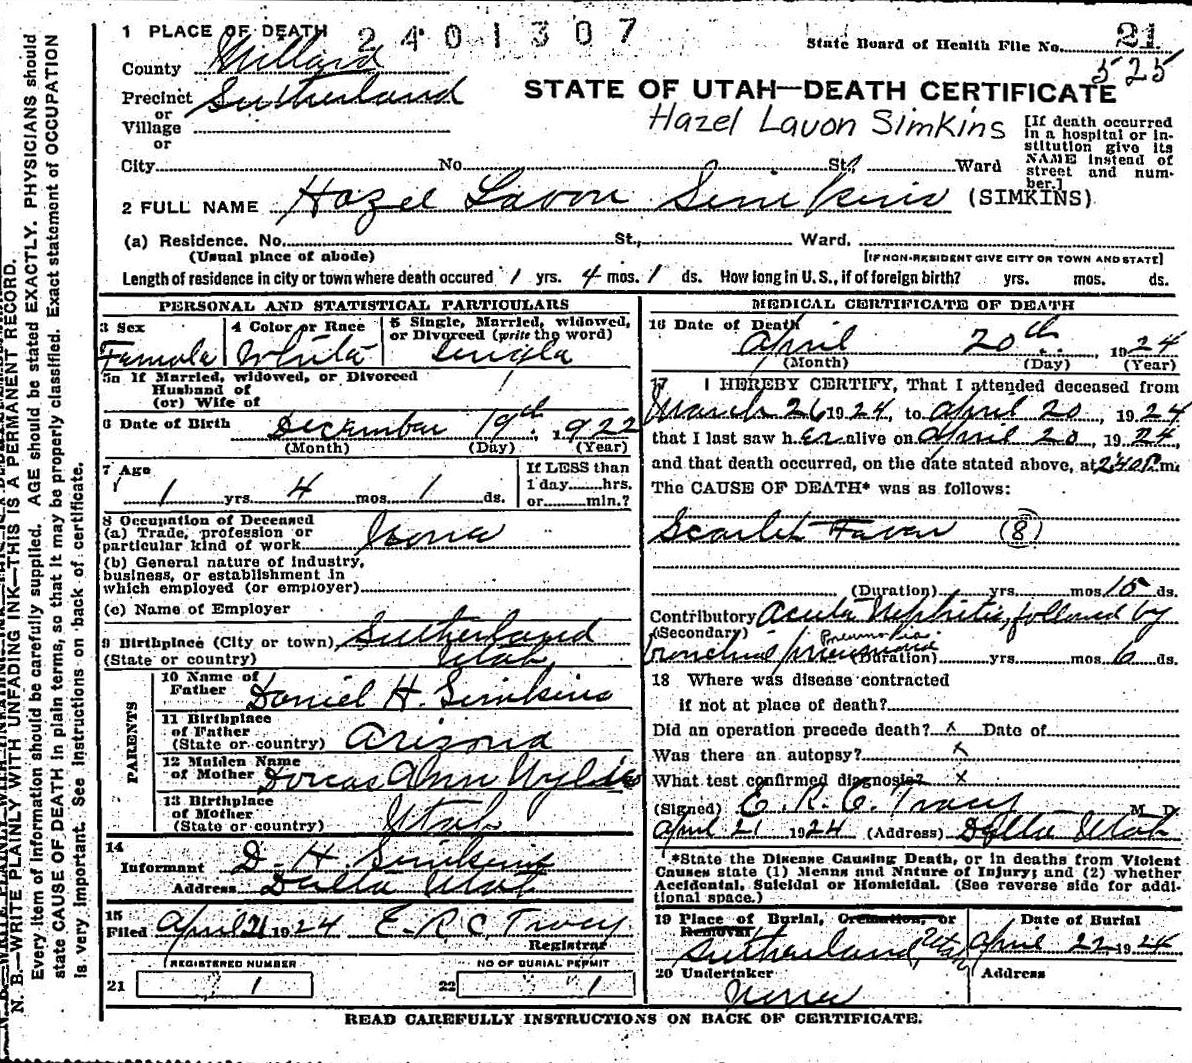 1 PLACE OF DEATH 2401307 State Board of Health File No. 21
525
County Millard
Precinct Sutherland
or
Village
or
STATE OF UTAH—DEATH CERTIFICATE
Hazel Lavon Simkins
[If death occurred
in a hospital or in-
stitution give its
NAME instead of
street and num-
ber.]
City No. St., Ward
2 FULL NAME Hazel Lavon Simkins (SIMKINS)
(a) Residence. No. St., Ward.
(Usual place of abode) [IF NON-RESIDENT GIVE CITY OR TOWN AND STATE]
Length of residence in city or town where death occured 1 yrs. 4 mos. 1 ds. How long in U. S., if of foreign birth? yrs. mos. ds.
PERSONAL AND STATISTICAL PARTICULARS
3 Sex
Famola
4 Color or Race
White
5 Single, Married, widowed,
or Divorced (write the word)
Single
5a If Married, widowed, or Divorced
Husband of
(or) Wife of
6 Date of Birth December 19th. 1922
(Month) (Day) (Year)
7 Age
1 yrs. 4 mos. 1 ds.
If LESS than
1 day hrs.
or min.?
8 Occupation of Deceased
(a) Trade, profession or
particular kind of work
(b) General nature of industry,
business, or establishment in
which employed (or employer)
(c) Name of Employer
9 Birthplace (City or town) Sutherland
(State or country) Utah
PARENTS
10 Name of
Father Daniel H. Simkins
11 Birthplace
of Father
(State or country) Arizona
12 Maiden Name
of Mother Dorcas Ann Wylie
13 Birthplace
of Mother
(State or country) Utah
14
Informant D. H. Simkins
Address Delta Utah
15
Filed April 21 1924 E. R. C. Tracy
Registrar
REGISTERED NUMBER
21 1
NO OF BURIAL PERMIT
22 1
MEDICAL CERTIFICATE OF DEATH
16 Date of Death
April 20th 1924
(Month) (Day) (Year)
17 I HEREBY CERTIFY, That I attended deceased from
March 26 1924, to April 20, 1924
that I last saw her alive on April 20, 1924,
and that death occurred, on the date stated above, at 2:40 P. m.
The CAUSE OF DEATH* was as follows:
Scarlet Fever (8)
(Duration) yrs. mos. 15 ds.
Contributory Acute Nephritis, followed by
(Secondary) Pneumonia.
bronchial pneumonia (Duration) yrs. mos. 6 ds.
18 Where was disease contracted
if not at place of death?
Did an operation precede death? x Date of
Was there an autopsy? x
What test confirmed diagnosis? x
(Signed) E. R. C. Tracy M D
April 21 1924 (Address) Delta Utah
*State the Disease Causing Death, or in deaths from Violent
Causes state (1) Menns and Nature of Injury; and (2) whether
Accidental, Suicidal or Homicidal. (See reverse side for addi-
tional space.)
19 Place of Burial, Cremation, or
Removal
Sutherland, Utah
Date of Burial
April 22, 1924
20 Undertaker
Address
READ CAREFULLY INSTRUCTIONS ON BACK OF CERTIFICATE.
N. B.—WRITE PLAINLY WITH UNFADING INK—THIS IS A PERMANENT RECORD.
Every item of information should be carefully supplied. AGE should be stated EXACTLY. PHYSICIANS should
state CAUSE OF DEATH in plain terms, so that it may be properly classified. Exact statement of OCCUPATION
is very important. See Instructions on back of certificate.